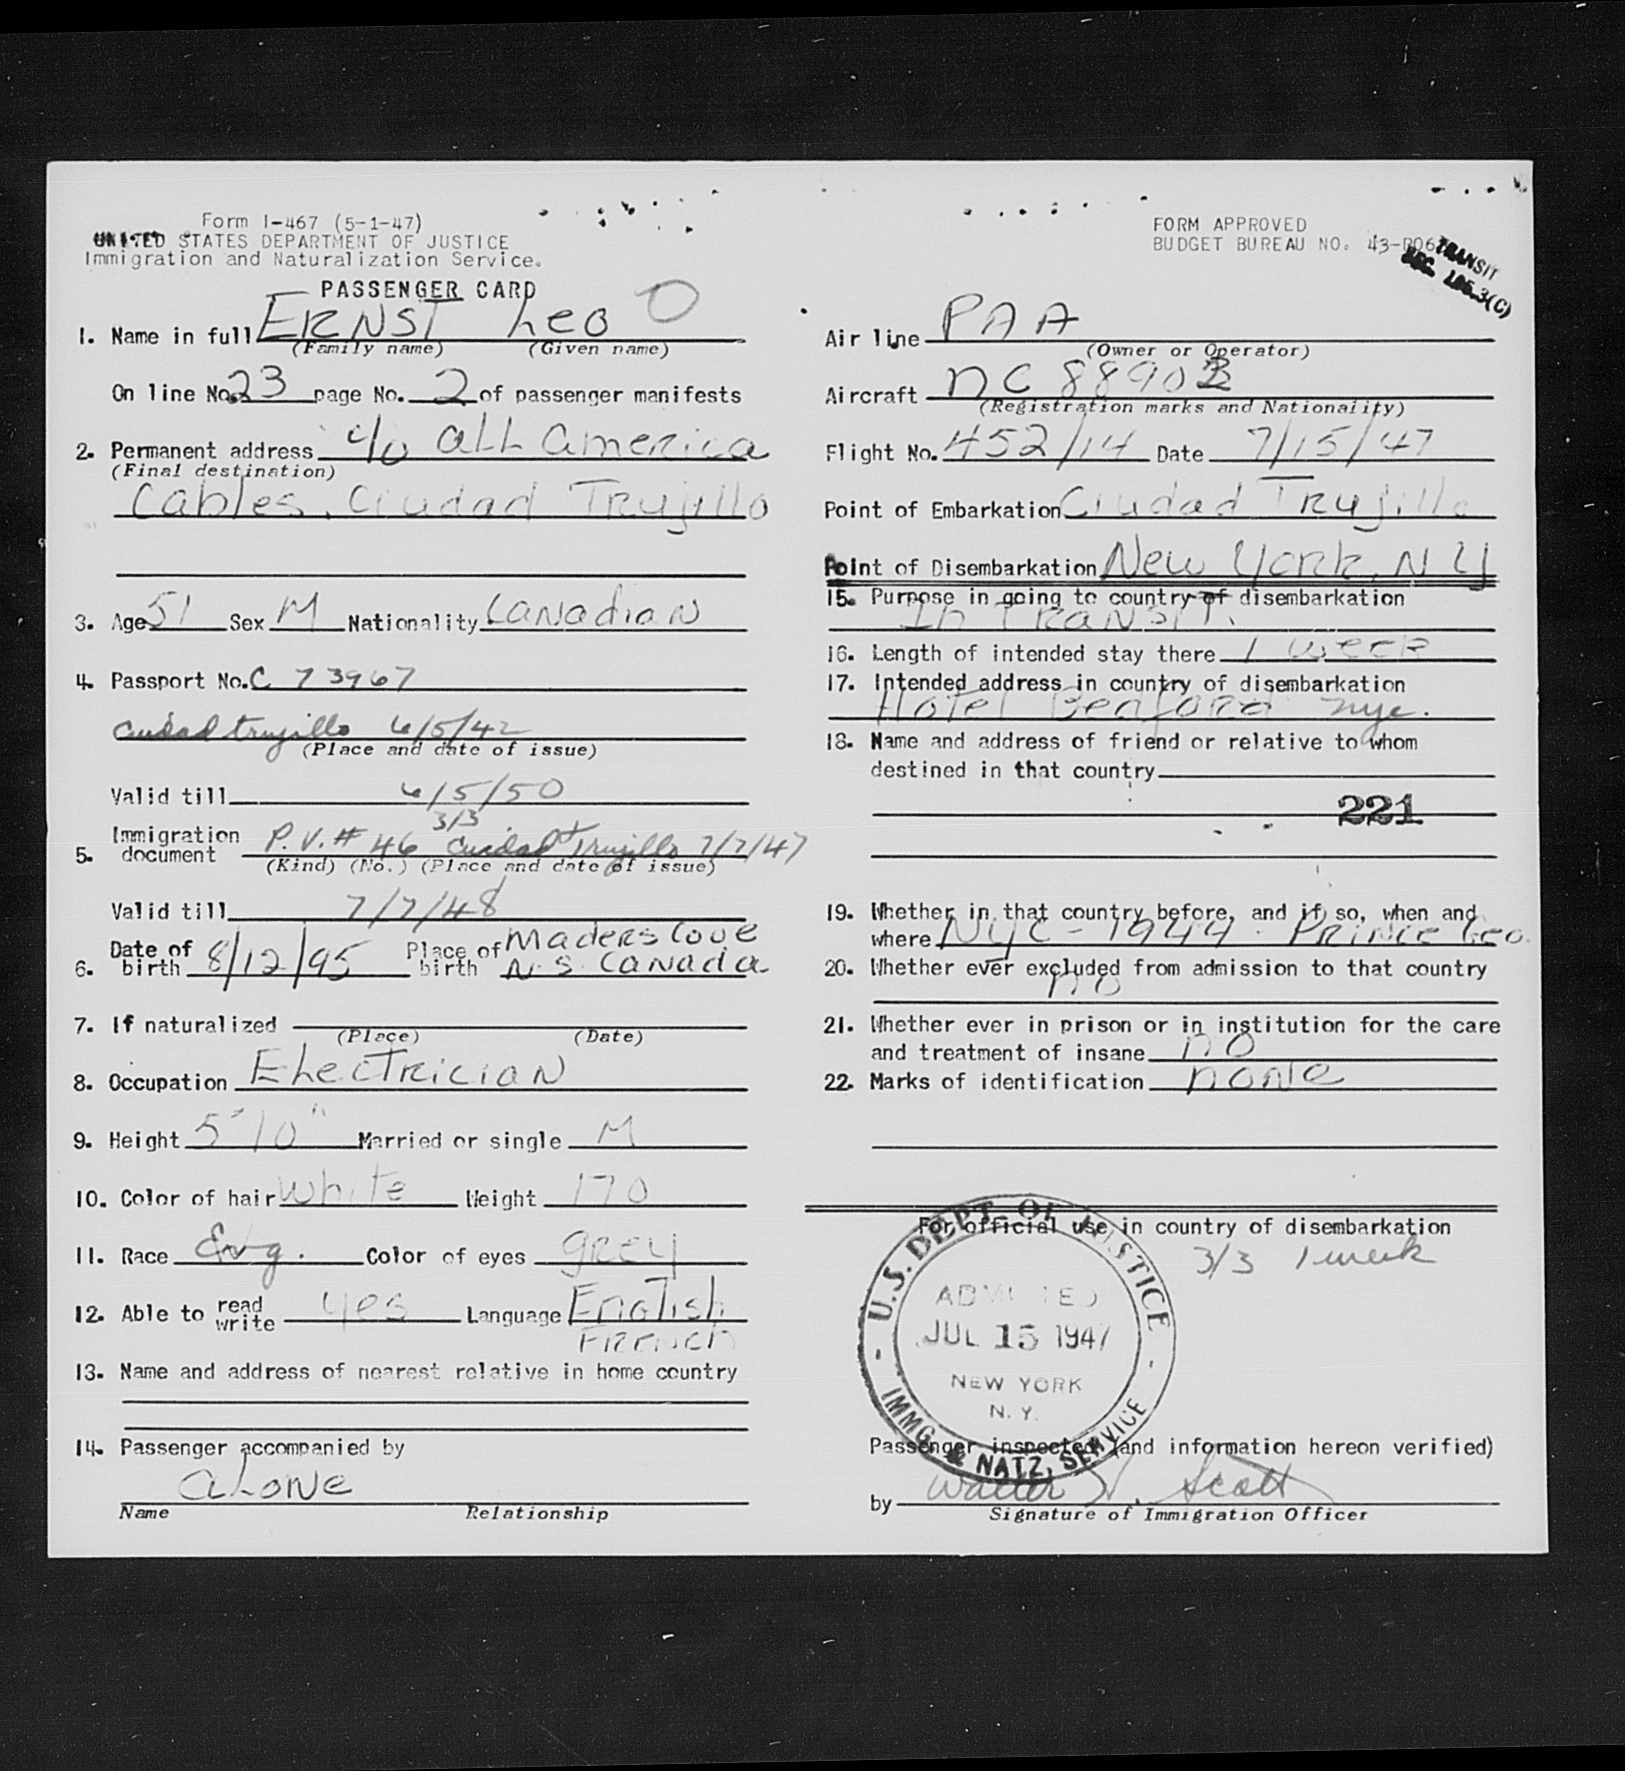 Form I-467 (5-1-47)
UNITED STATES DEPARTMENT OF JUSTICE
Immigration and Naturalization Service.
PASSENGER CARD
1. Name in full ERNST Leo O
(Family name) (Given name)
On line No. 23 page No. 2 of passenger manifests
2. Permanent address c/o ALL America
(Final destination)
Cables, Ciudad Trujillo
3. Age 51 Sex M Nationality Canadian
4. Passport No. C 73967
Ciudad Trujillo 6/5/42
(Place and date of issue)
Valid till 6/5/50
3/3
5. Immigration document P.V. # 46 Ciudad Trujillo 7/7/47
(Kind) (No.) (Place and date of issue)
Valid till 7/7/48
6. Date of birth 8/12/95 Place of birth Maders Cove N.S. Canada
7. If naturalized
(Place) (Date)
8. Occupation Electrician
9. Height 5' 10" Married or single M
10. Color of hair White Weight 170
11. Race Eng. Color of eyes grey
12. Able to read write yes Language English
French
13. Name and address of nearest relative in home country
14. Passenger accompanied by
aLone
Name Relationship
FORM APPROVED
BUDGET BUREAU NO. 43-R06
TRANSIT
SEC. 3(C)
Air line PAA
(Owner or Operator)
Aircraft NC 8890
(Registration marks and Nationality)
Flight No. 452/14 Date 7/15/47
Point of Embarkation Ciudad Trujillo
Point of Disembarkation New York, N Y
15. Purpose in going to country of disembarkation
In Transit.
16. Length of intended stay there 1 week
17. Intended address in country of disembarkation
Hotel Bedford nyc.
18. Name and address of friend or relative to whom
destined in that country
221
19. Whether in that country before, and if so, when and
where NYC - 1944 - Prince Geo.
20. Whether ever excluded from admission to that country
no
21. Whether ever in prison or in institution for the care
and treatment of insane no
22. Marks of identification none
For official use in country of disembarkation
3/3 1 week
U.S. DEPT. OF JUSTICE
ADMITTED
JUL 15 1947
NEW YORK
N. Y.
IMMG. & NATZ. SERVICE
Passenger inspected (and information hereon verified)
by Walter Scott
Signature of Immigration Officer